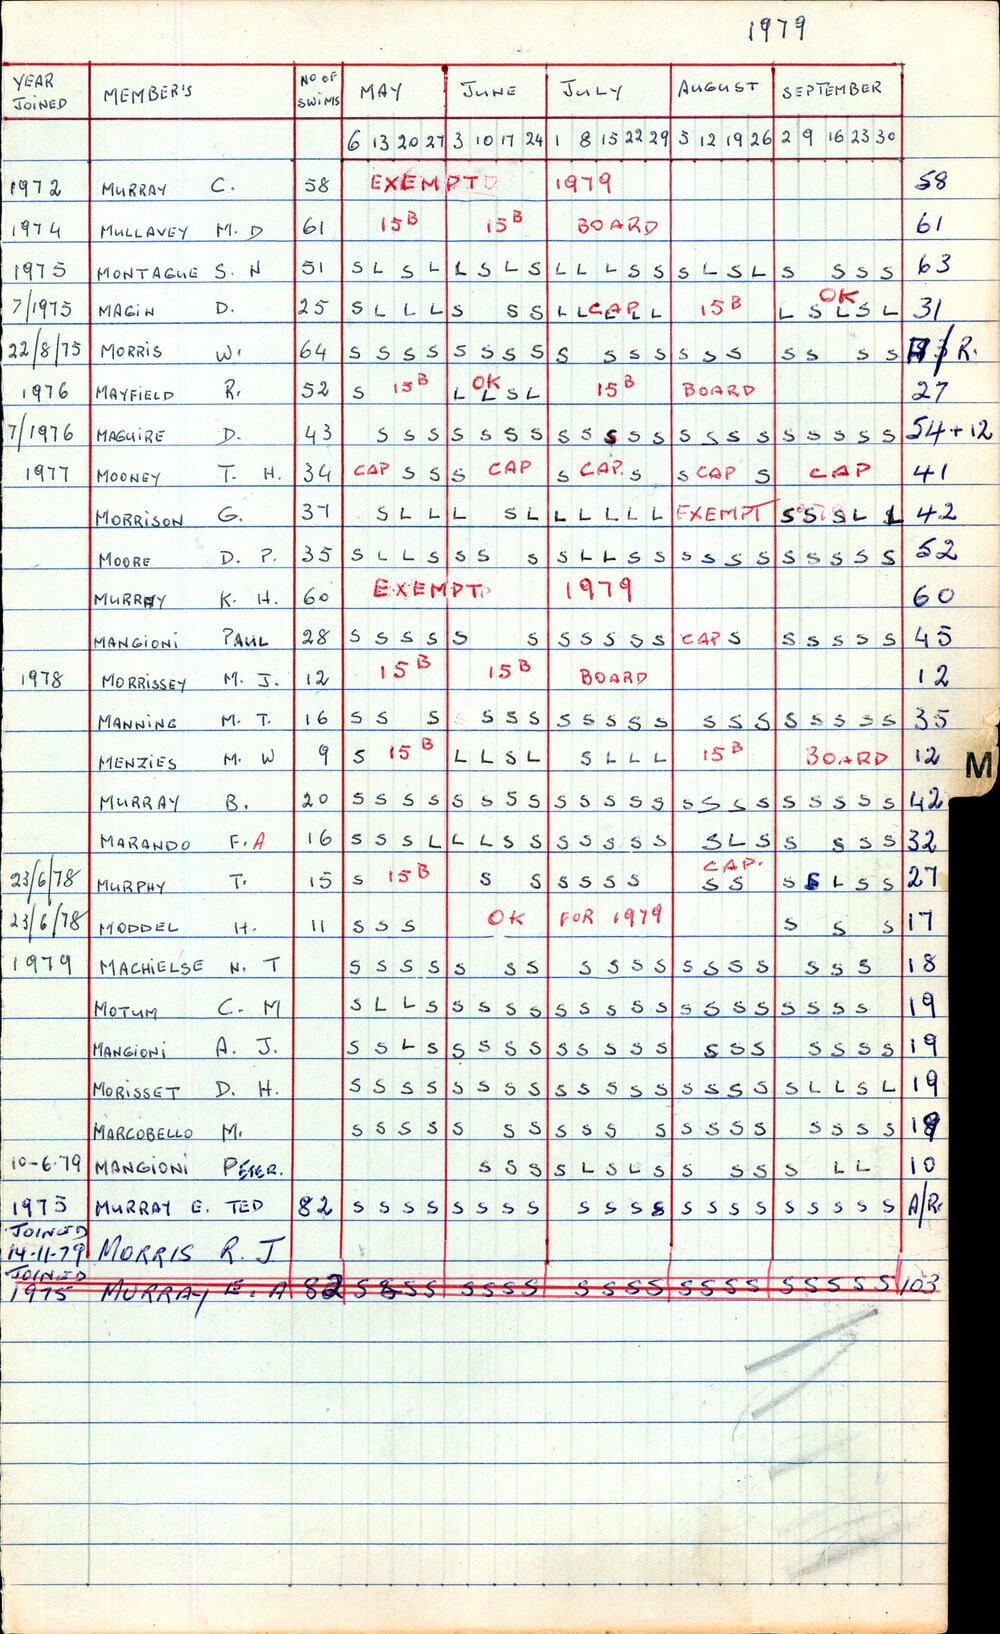 1979
YEAR JOINED MEMBER'S NO OF SWIMS MAY JUNE JULY AUGUST SEPTEMBER
6 13 20 27 3 10 17 24 1 8 15 22 29 5 12 19 26 2 9 16 23 30
1972 MURRAY C. 58 EXEMPT 1979 58
1974 MULLAVEY M. D 61 15B 15B BOARD 61
1975 MONTAGUE S. N 51 S L S L L S L S L L L S S S L S L S S S S 63
7/1975 MAGIN D. 25 S L L L S S S L L CAP L L 15B OK L S L S L 31
22/8/75 MORRIS W. 64 S S S S S S S S S S S S S S S S S S S S A/R.
1976 MAYFIELD R. 52 S 15B OK L L S L 15B BOARD 27
7/1976 MAGUIRE D. 43 S S S S S S S S S S S S S S S S S S S S S 54+12
1977 MOONEY T. H. 34 CAP S S S CAP S CAP. S S CAP S CAP 41
MORRISON G. 37 S L L L L S L L L L L L EXEMPT S S S L L 42
MOORE D. P. 35 S L L S S S S S L L S S S S S S S S S S S 52
MURRAY K. H. 60 EXEMPT 1979 60
MANGIONI PAUL 28 S S S S S S S S S S S CAP S S S S S S 45
1978 MORRISSEY M. J. 12 15B 15B BOARD 12
MANNING M. T. 16 S S S S S S S S S S S S S S S S S S S 35
MENZIES M. W 9 S 15B L L S L S L L L 15B BOARD 12
MURRAY B. 20 S S S S S S S S S S S S S S S S S S S S S S 42
M
MARANDO F.A 16 S S S L L L S S S S S S S S L S S S S S 32
23/6/78 MURPHY T. 15 S 15B S S S S S S CAP. S S S S L S S 27
23/6/78 MODDEL H. 11 S S S OK FOR 1979 S S S 17
1979 MACHIELSE N. T S S S S S S S S S S S S S S S S S S 18
MOTUM C. M S L L S S S S S S S S S S S S S S S S S S 19
MANGIONI A. J. S S L S S S S S S S S S S S S S S S S S 19
MORISSET D. H. S S S S S S S S S S S S S S S S S S L L S L 19
MARCOBELLO M. S S S S S S S S S S S S S S S S S S S 19
10-6-79 MANGIONI PETER. S S S S L S L S S S S S S L L 10
1975 MURRAY E. TED 82 S S S S S S S S S S S S S S S S S S S S S A/R.
JOINED 14-11-79 MORRIS R. J
JOINED 1975 MURRAY E. A 82 S S S S S S S S S S S S S S S S S S S S S 103